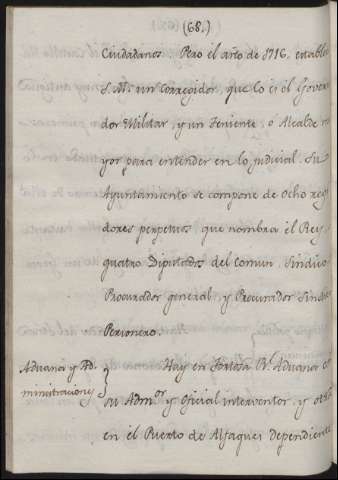 (68.)
Ciudadanos. Pero el año de 1716. establec
S. M. un Corregidor, que lo es el Gover
dor Militar, y un Teniente ó Alcalde ma
yor para entender en lo judicial. Su
Ayuntamiento se compone de ocho regi
dores perpetuos que nombra el Rey,
quatro Diputados del Comun, Sindico
Procurador general y Procurador Sindico
Personero.
Aduana y Ad
ministraciones
Hay en Tortosa Rl. Aduana con
su Admor. y oficial interventor, y otra
en el Puerto de Alfaques dependiente